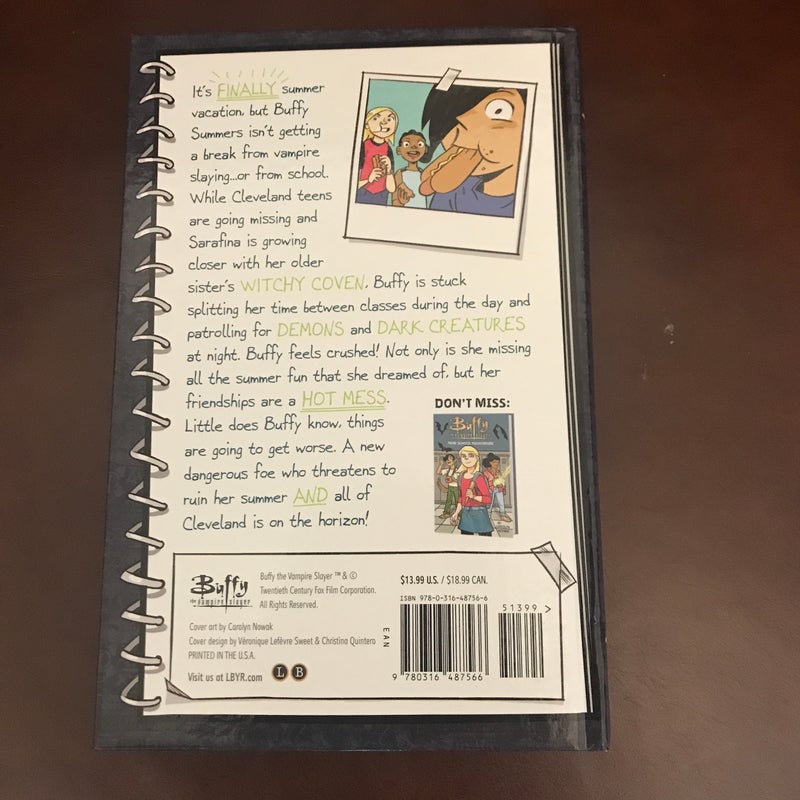 It's FINALLY summer
vacation, but Buffy
Summers isn't getting
a break from vampire
slaying...or from school.
While Cleveland teens
are going missing and
Sarafina is growing
closer with her older
sister's WITCHY COVEN, Buffy is stuck
splitting her time between classes during the day and
patrolling for DEMONS and DARK CREATURES
at night. Buffy feels crushed! Not only is she missing
all the summer fun that she dreamed of, but her
friendships are a HOT MESS.
Little does Buffy know, things
are going to get worse. A new
dangerous foe who threatens to
ruin her summer AND all of
Cleveland is on the horizon!
DON'T MISS:
Buffy
Buffy
the vampire slayer
Buffy the Vampire Slayer ™ & ©
Twentieth Century Fox Film Corporation.
All Rights Reserved.
Cover art by Carolyn Nowak
Cover design by Véronique Lefèvre Sweet & Christina Quintero
PRINTED IN THE U.S.A.
Visit us at LBYR.com
L B
$13.99 U.S. / $18.99 CAN.
ISBN 978-0-316-48756-6
51399 >
EAN
9 780316 487566